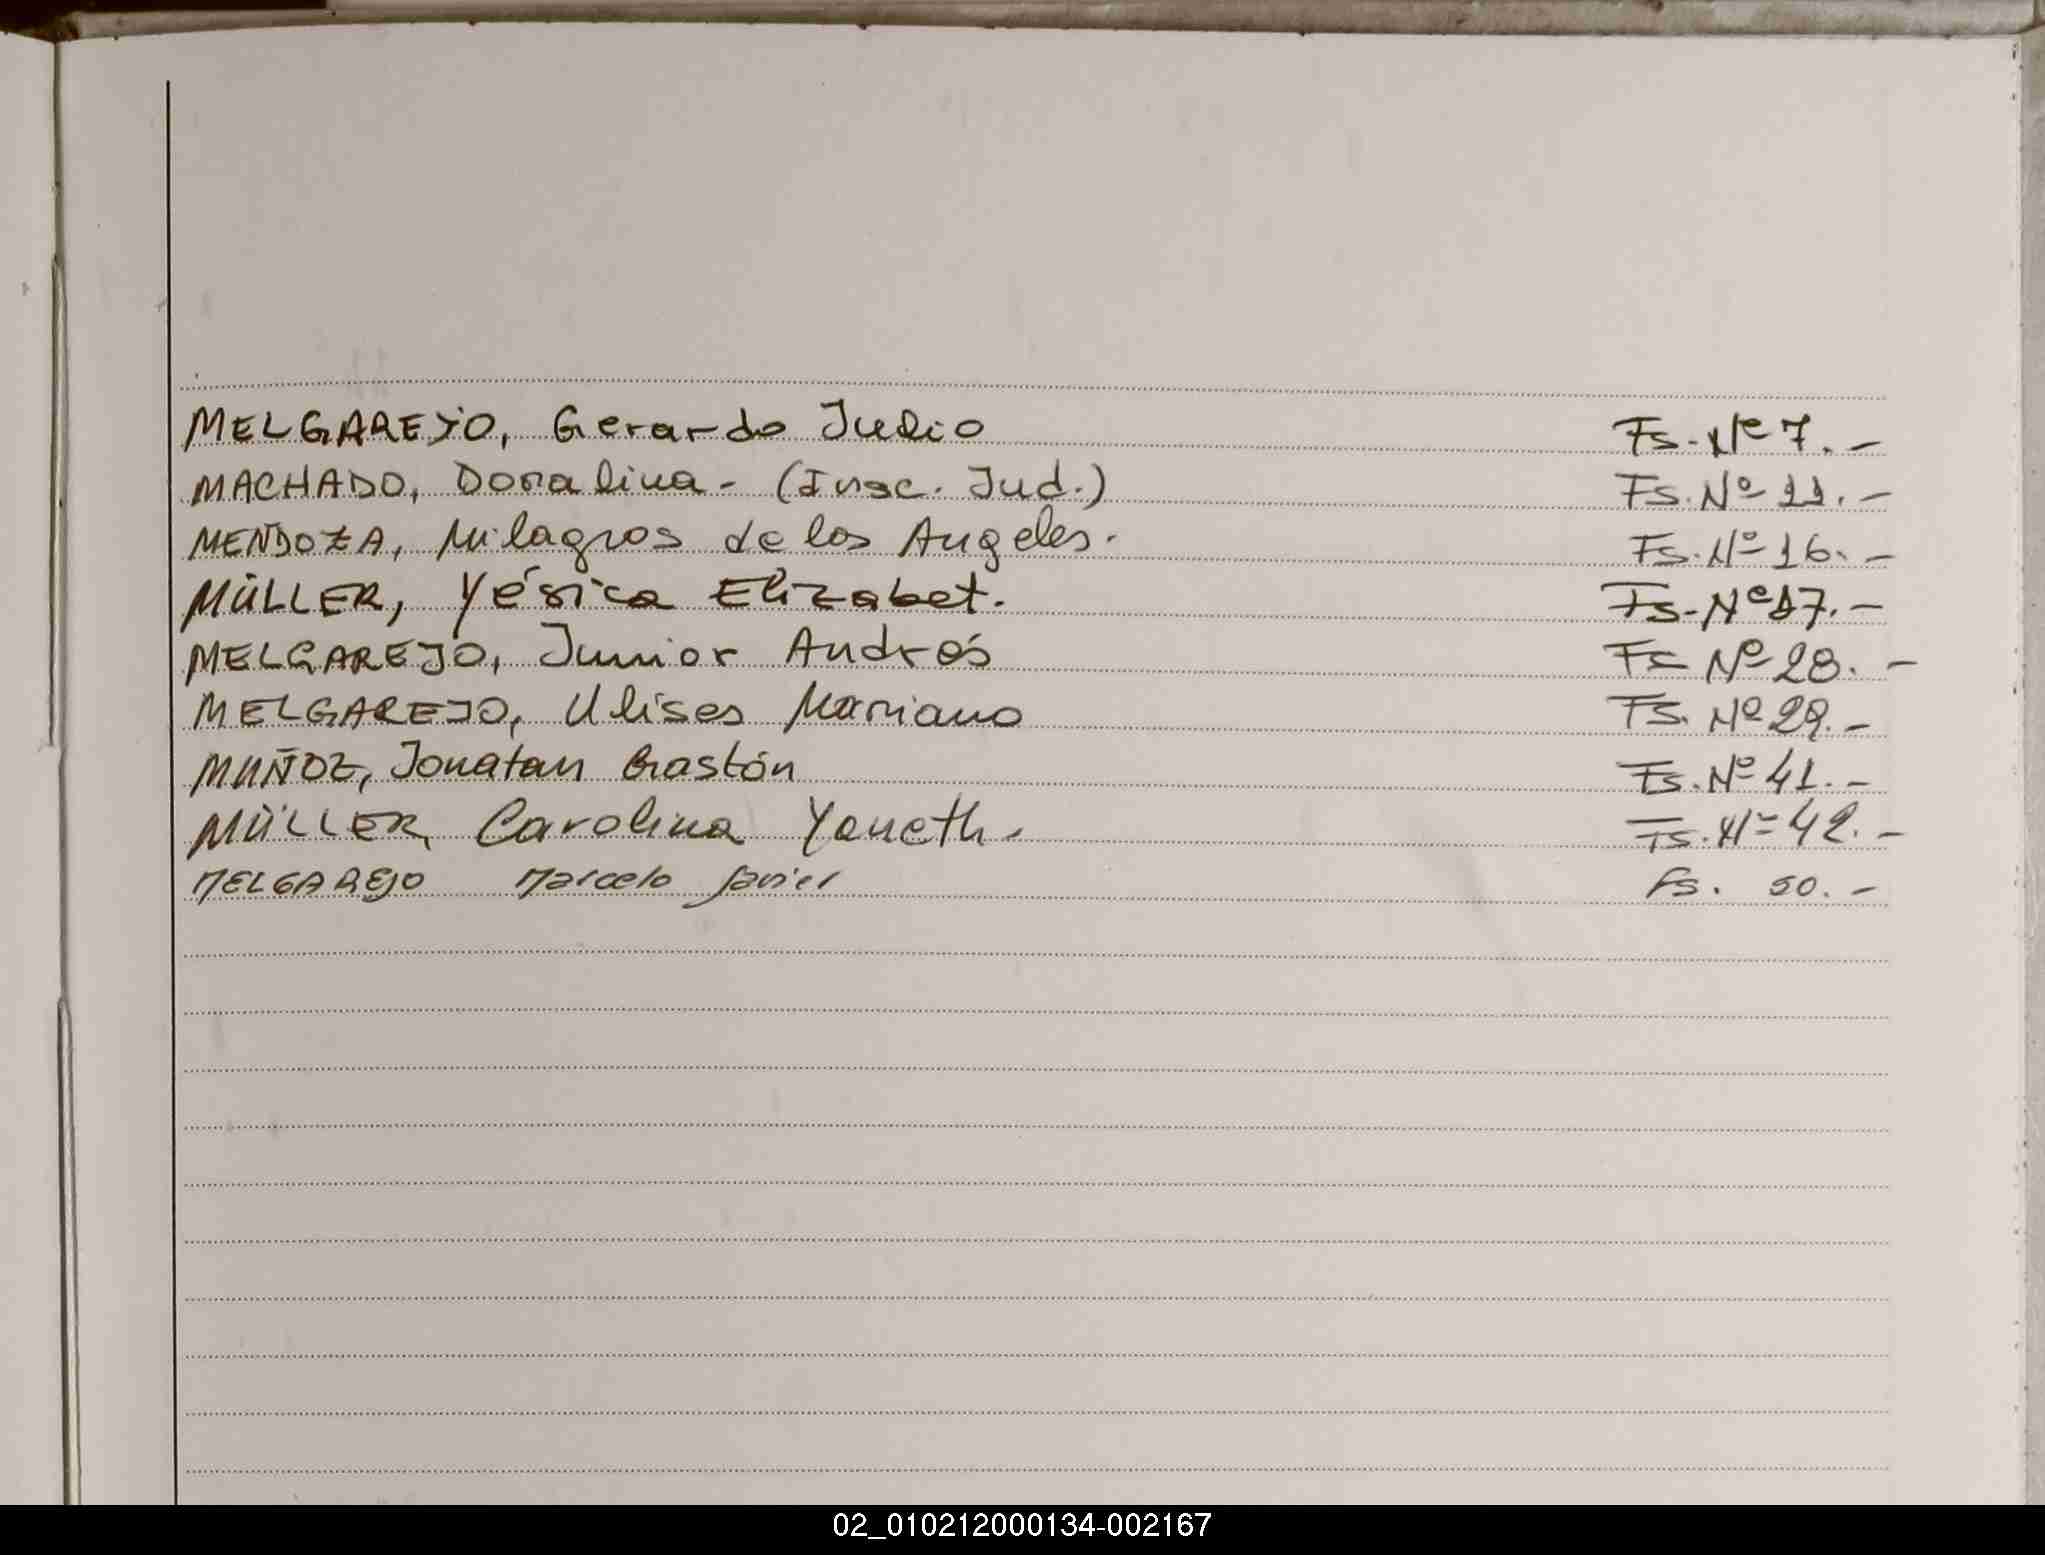 MELGAREJO, Gerardo Julio Fs. Nº 7.-
MACHADO, Doralina - (Insc. Jud.) Fs. Nº 11.-
MENDOZA, Milagros de los Angeles. Fs. Nº 16.-
MÜLLER, Yésica Elizabet. Fs. Nº 17.-
MELGAREJO, Junior Andrés Fs Nº 28.-
MELGAREJO, Ulises Mariano Fs. Nº 29.-
MUÑOZ, Jonatan Gastón Fs. Nº 41.-
MÜLLER, Carolina Yaneth. Fs. Nº 42.-
MELGAREJO Marcelo Javier Fs. 50.-
02_010212000134-002167